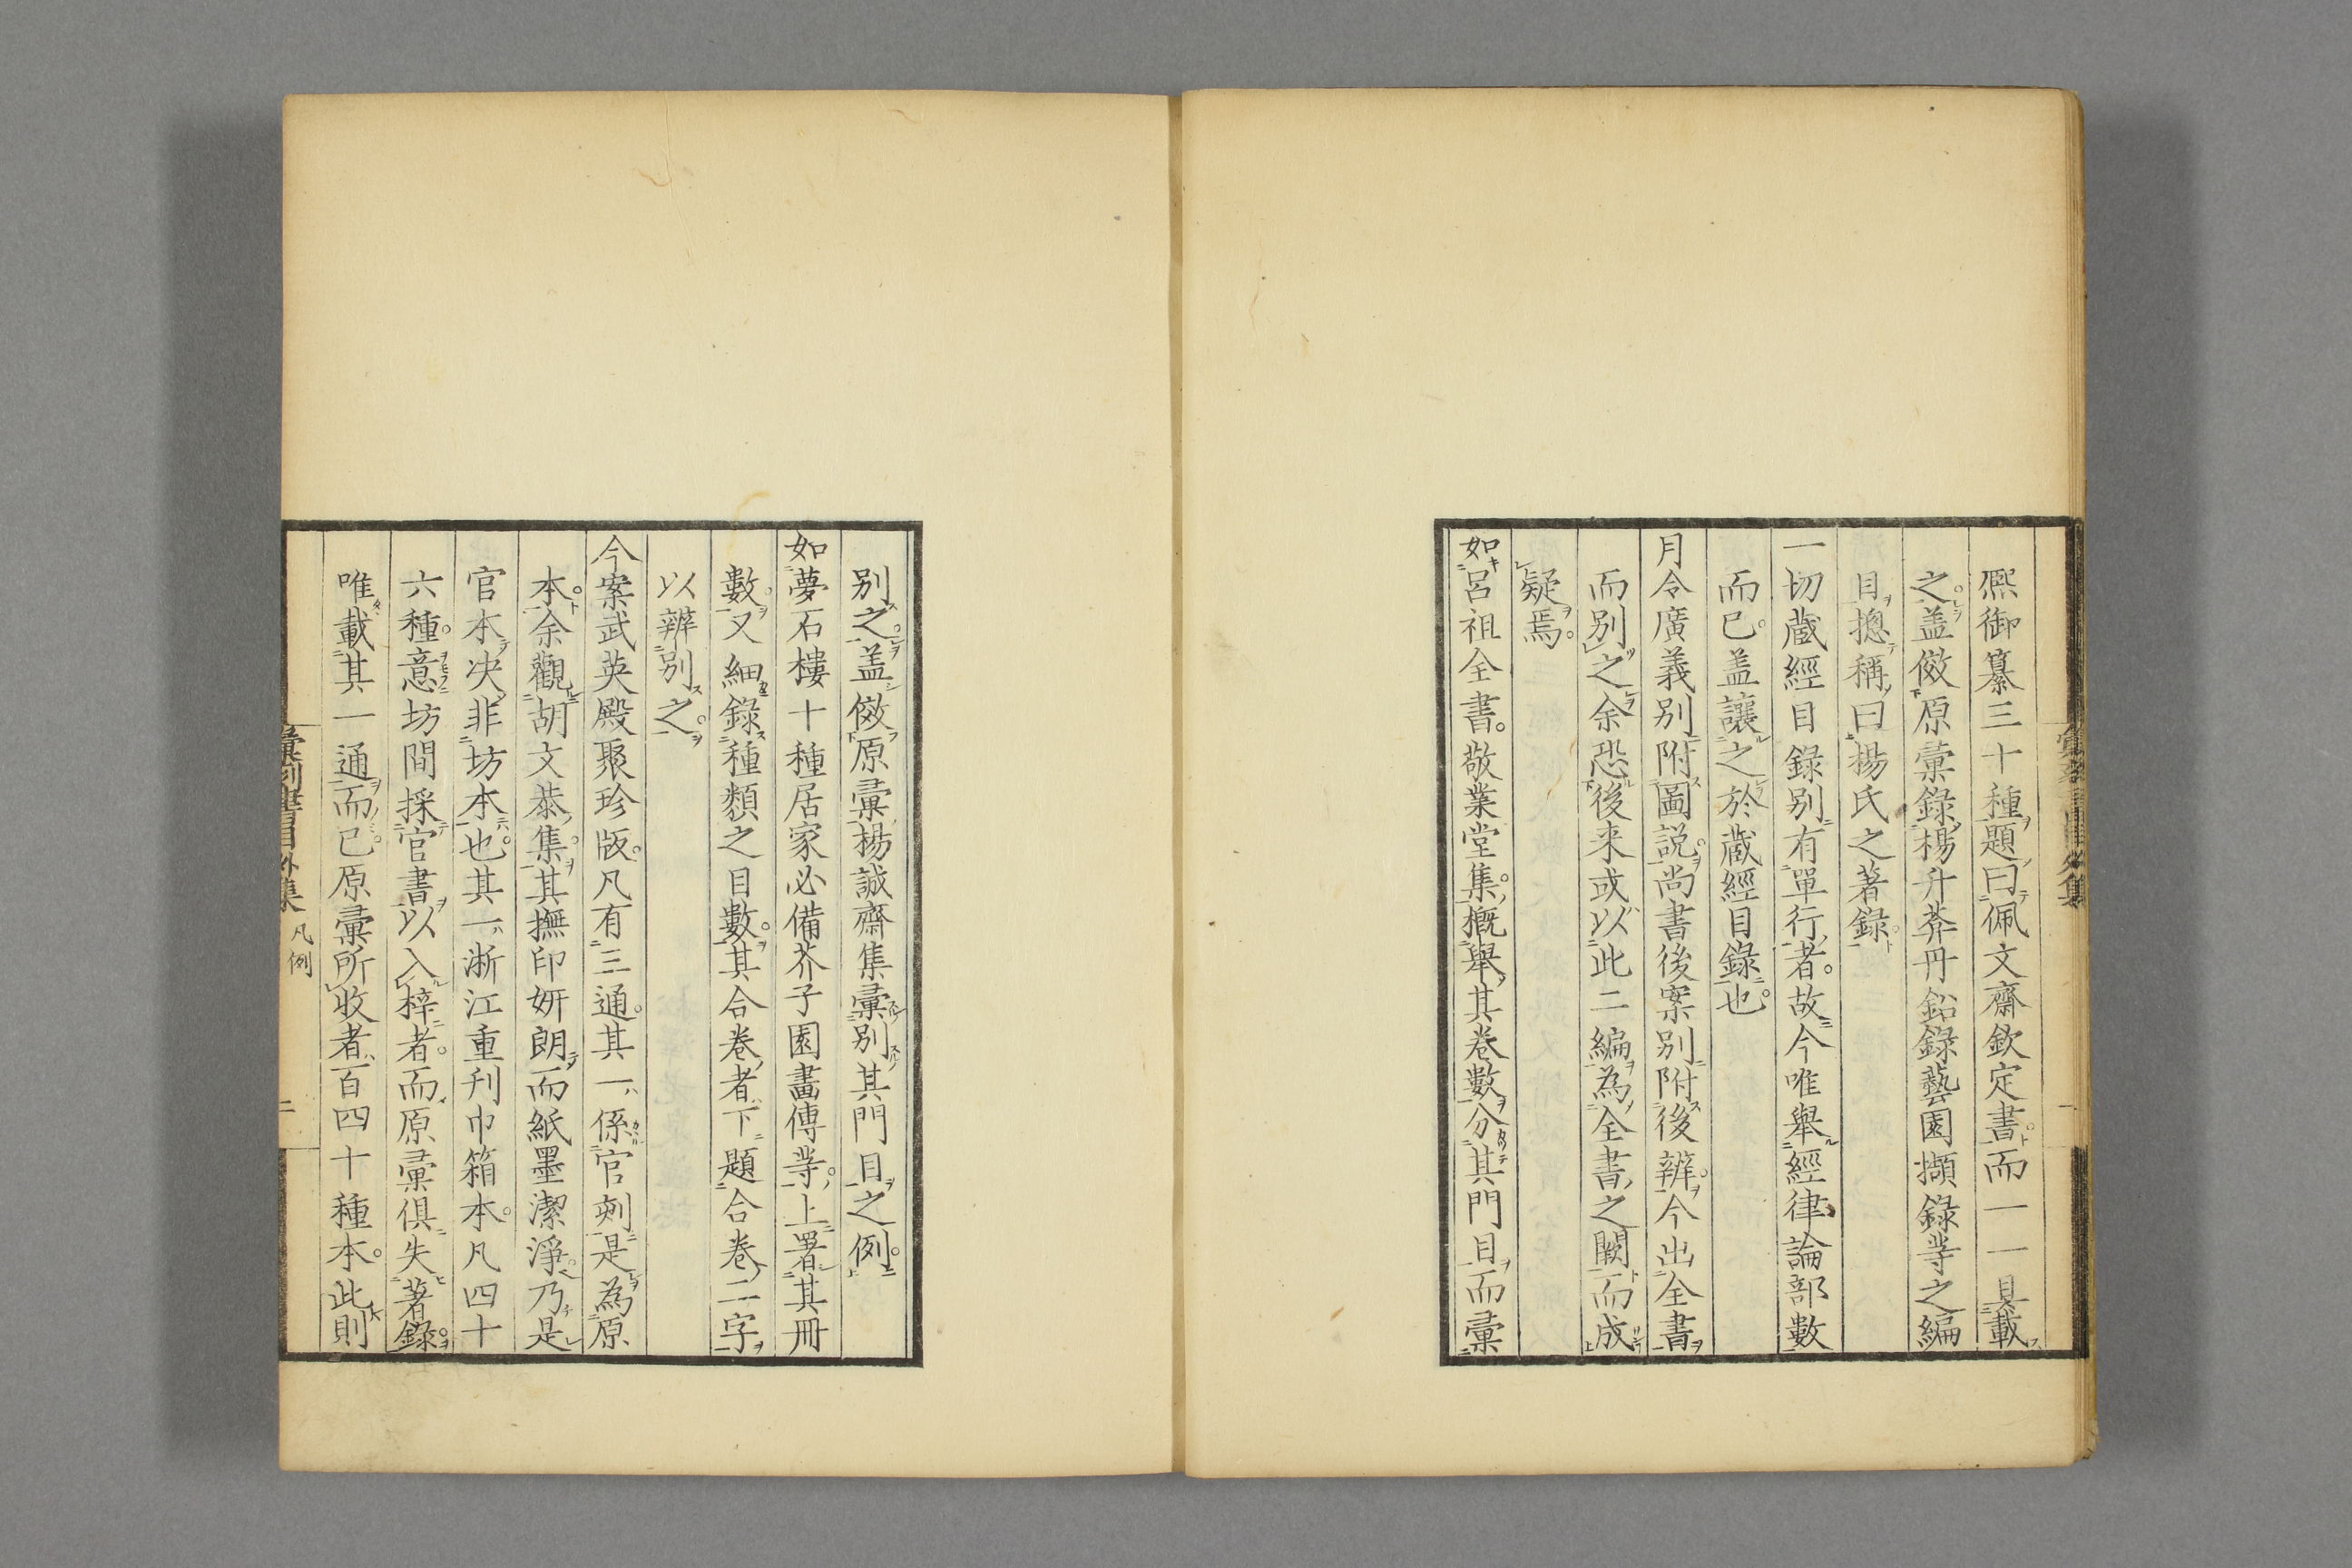 熙御纂三十種題曰佩文齋欽定書而一一具載
之盖倣原彙錄楊升菴丹鉛錄藝園擷錄等之編
目摠稱曰楊氏之著錄
一切蔵經目錄別有單行者故今唯舉經律論部數
而已盖讓之於蔵經目錄也
月令廣義別附圖説尚書後案別附後辨今出全書
而別之余恐後来或以此二編為全書之闕而成
疑焉
如呂祖全書敬業堂集概舉其卷數分其門目而彙
別之盖倣原彙楊誠齋集彙別其門目之例
如夢石樓十種居家必備芥子園畵傳等上署其冊
數又細錄種類之目數其合卷者下題合卷二字
以辨別之
今案武英殿聚珍版凡有三通其一係官刻是為原
本余觀胡文恭集其撫印妍朗而紙墨潔淨乃是
官本决非坊本也其一浙江重刋巾箱本凡四十
六種意坊間採官書以入梓者而原彙俱失著錄
唯載其一通而已原彙所收者百四十種本此則
彙刻書目外集 凡例 二